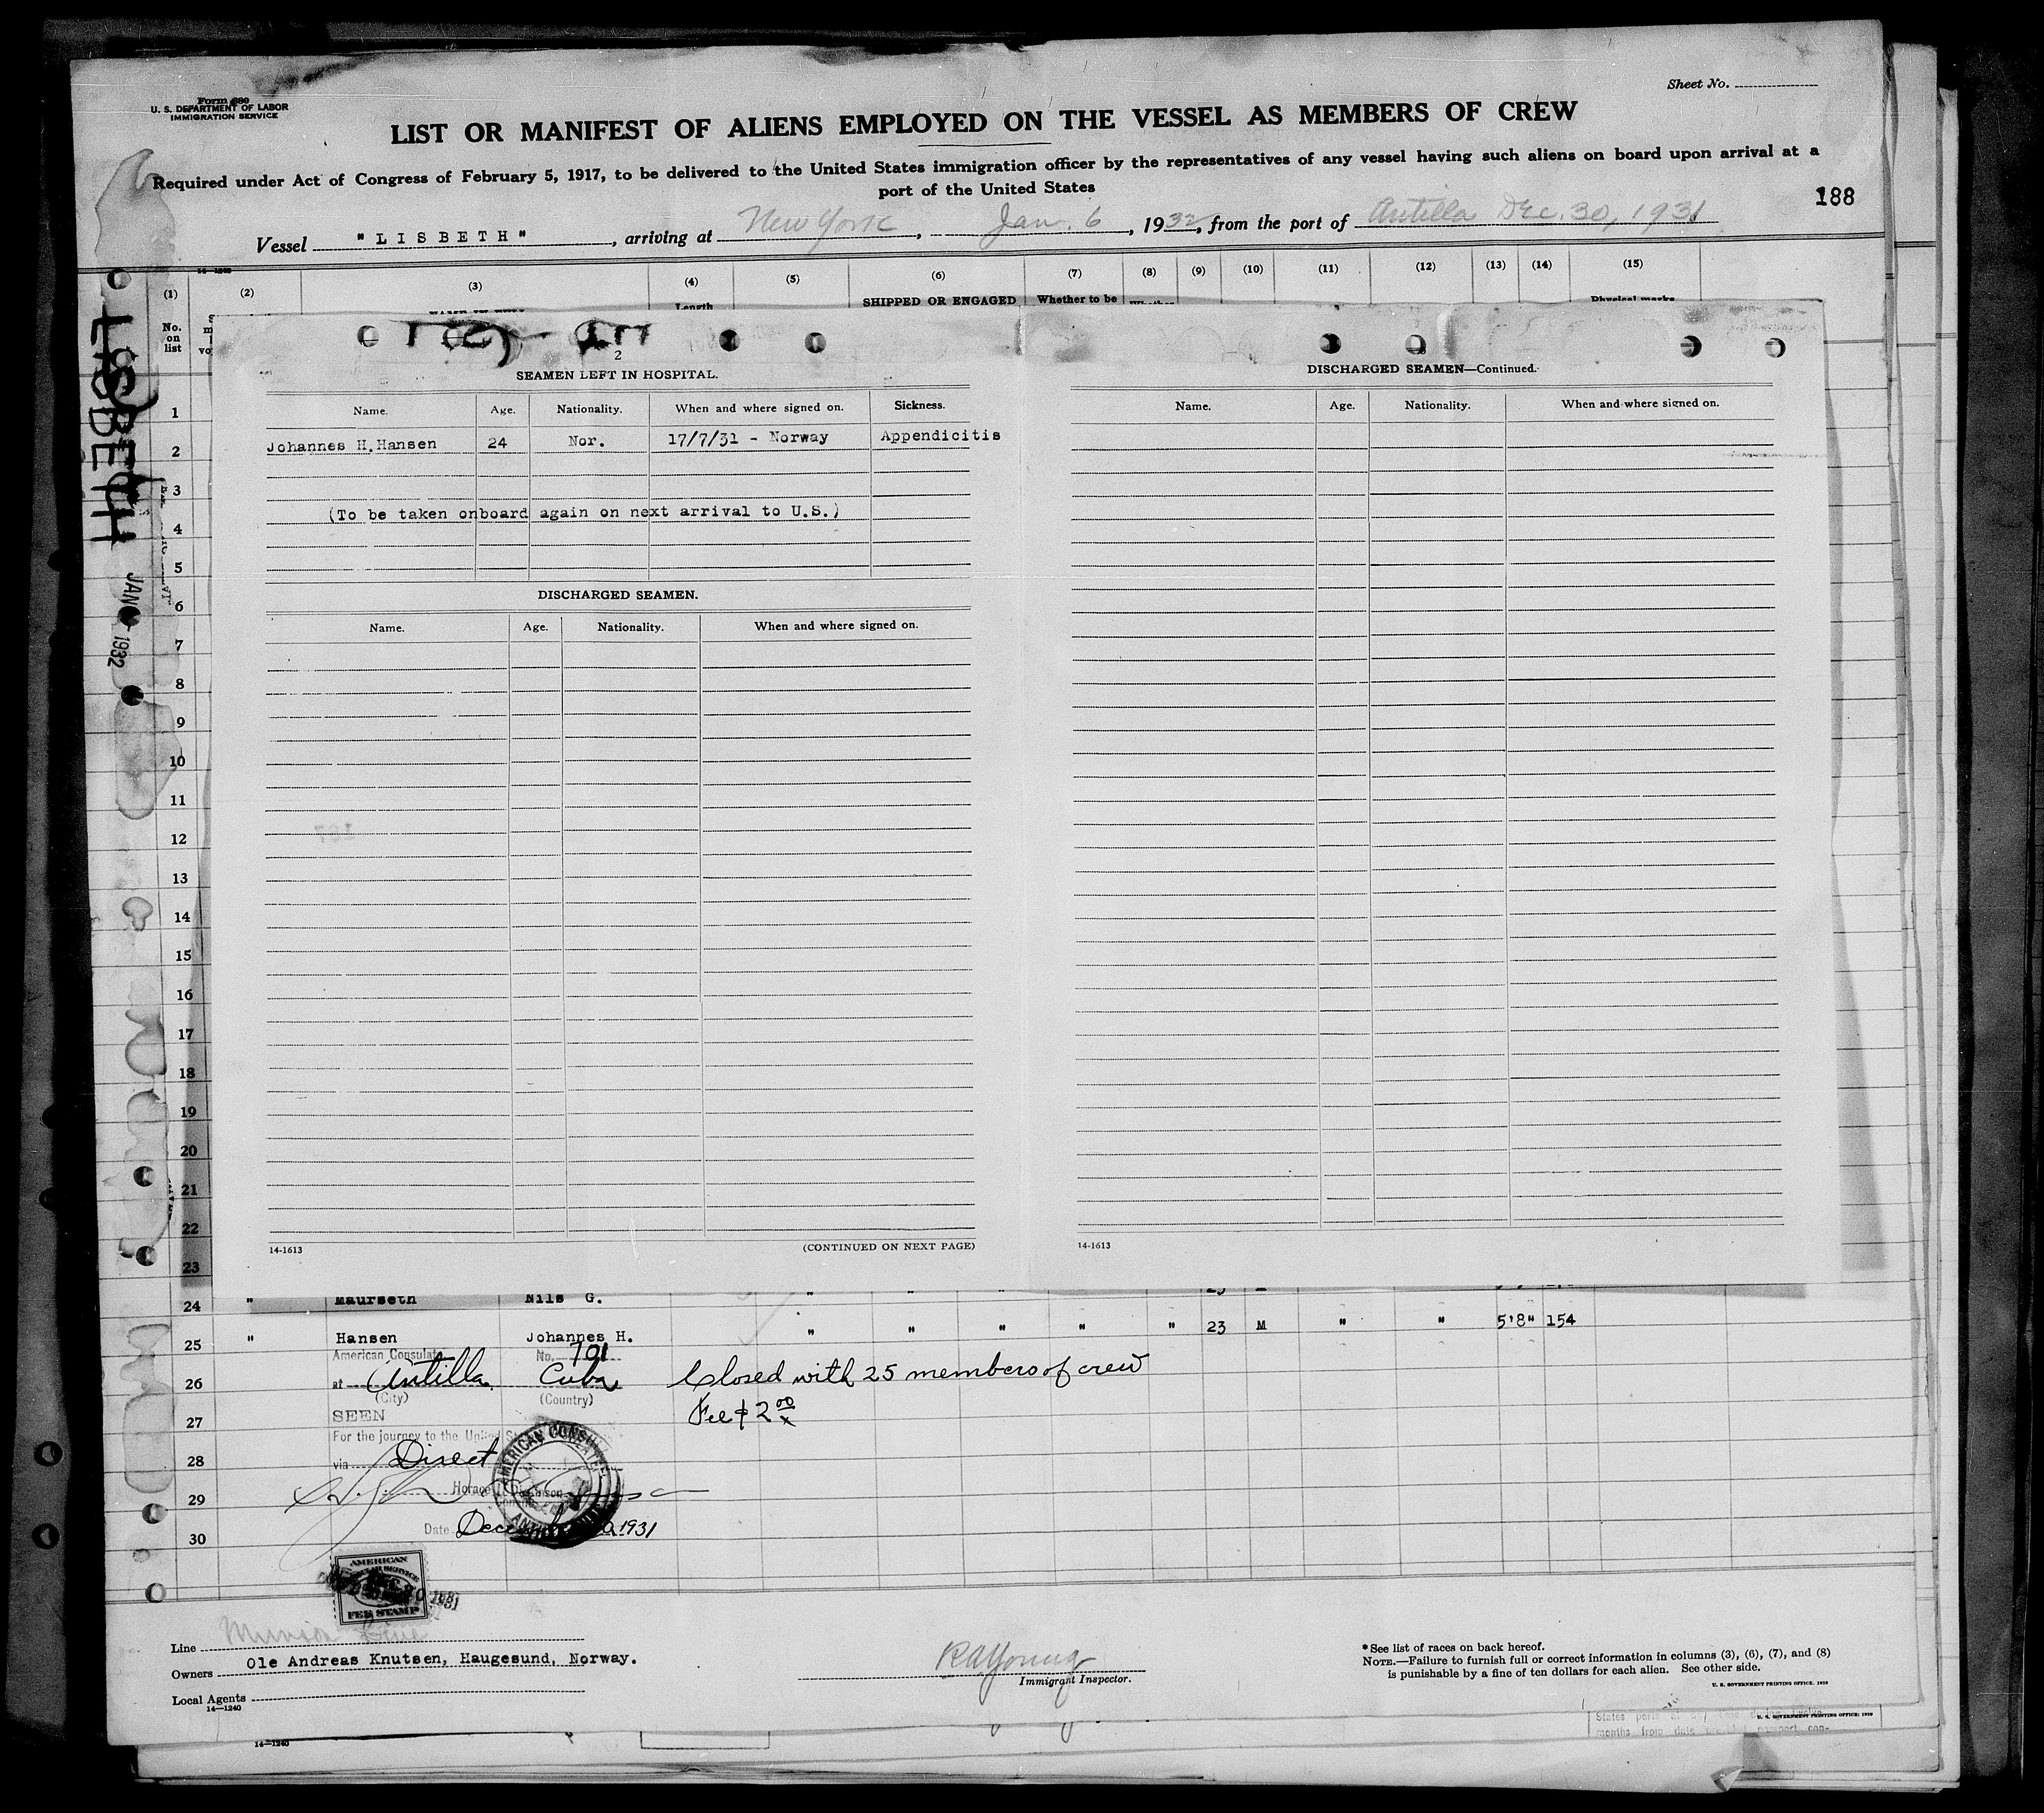 Form 680
U. S. DEPARTMENT OF LABOR
IMMIGRATION SERVICE
Sheet No.
LIST OR MANIFEST OF ALIENS EMPLOYED ON THE VESSEL AS MEMBERS OF CREW
Required under Act of Congress of February 5, 1917, to be delivered to the United States immigration officer by the representatives of any vessel having such aliens on board upon arrival at a
port of the United States
188
Vessel "LISBETH", arriving at New York, Jan. 6, 1932, from the port of Antilla Dec. 30, 1931
14-1240
(1) (2) (3) (4) (5) (6) (7) (8) (9) (10) (11) (12) (13) (14) (15)
Length SHIPPED OR ENGAGED Whether to be Physical marks
No. on list
LISBETH
JAN 1932
2
SEAMEN LEFT IN HOSPITAL.
Name. Age. Nationality. When and where signed on. Sickness.
Johannes H. Hansen 24 Nor. 17/7/31 - Norway Appendicitis
(To be taken onboard again on next arrival to U.S.)
DISCHARGED SEAMEN.
Name. Age. Nationality. When and where signed on.
14-1613 (CONTINUED ON NEXT PAGE)
DISCHARGED SEAMEN—Continued.
Name. Age. Nationality. When and where signed on.
14-1613
1
2
3
4
5
6
7
8
9
10
11
12
13
14
15
16
17
18
19
20
21
22
23
24 " Maurseth Nils G. " " " " "
25 " Hansen Johannes H. " " " " " 23 M " " 5'8" 154
American Consulate No. 701
26 at Antilla, Cuba Closed with 25 members of crew
(City) (Country)
27 SEEN Fee $2.00
For the journey to the United
28 via Direct
29
AMERICAN CONSULATE
30 Date 1931
AMERICAN
FEE STAMP
Line Munson Line
Owners Ole Andreas Knutsen, Haugesund, Norway.
Local Agents
14—1240
R A Young
Immigrant Inspector.
*See list of races on back hereof.
NOTE.—Failure to furnish full or correct information in columns (3), (6), (7), and (8)
is punishable by a fine of ten dollars for each alien. See other side.
U. S. GOVERNMENT PRINTING OFFICE: 1930
14—1240
States ports
months from date
U. S. GOVERNMENT PRINTING OFFICE: 1930